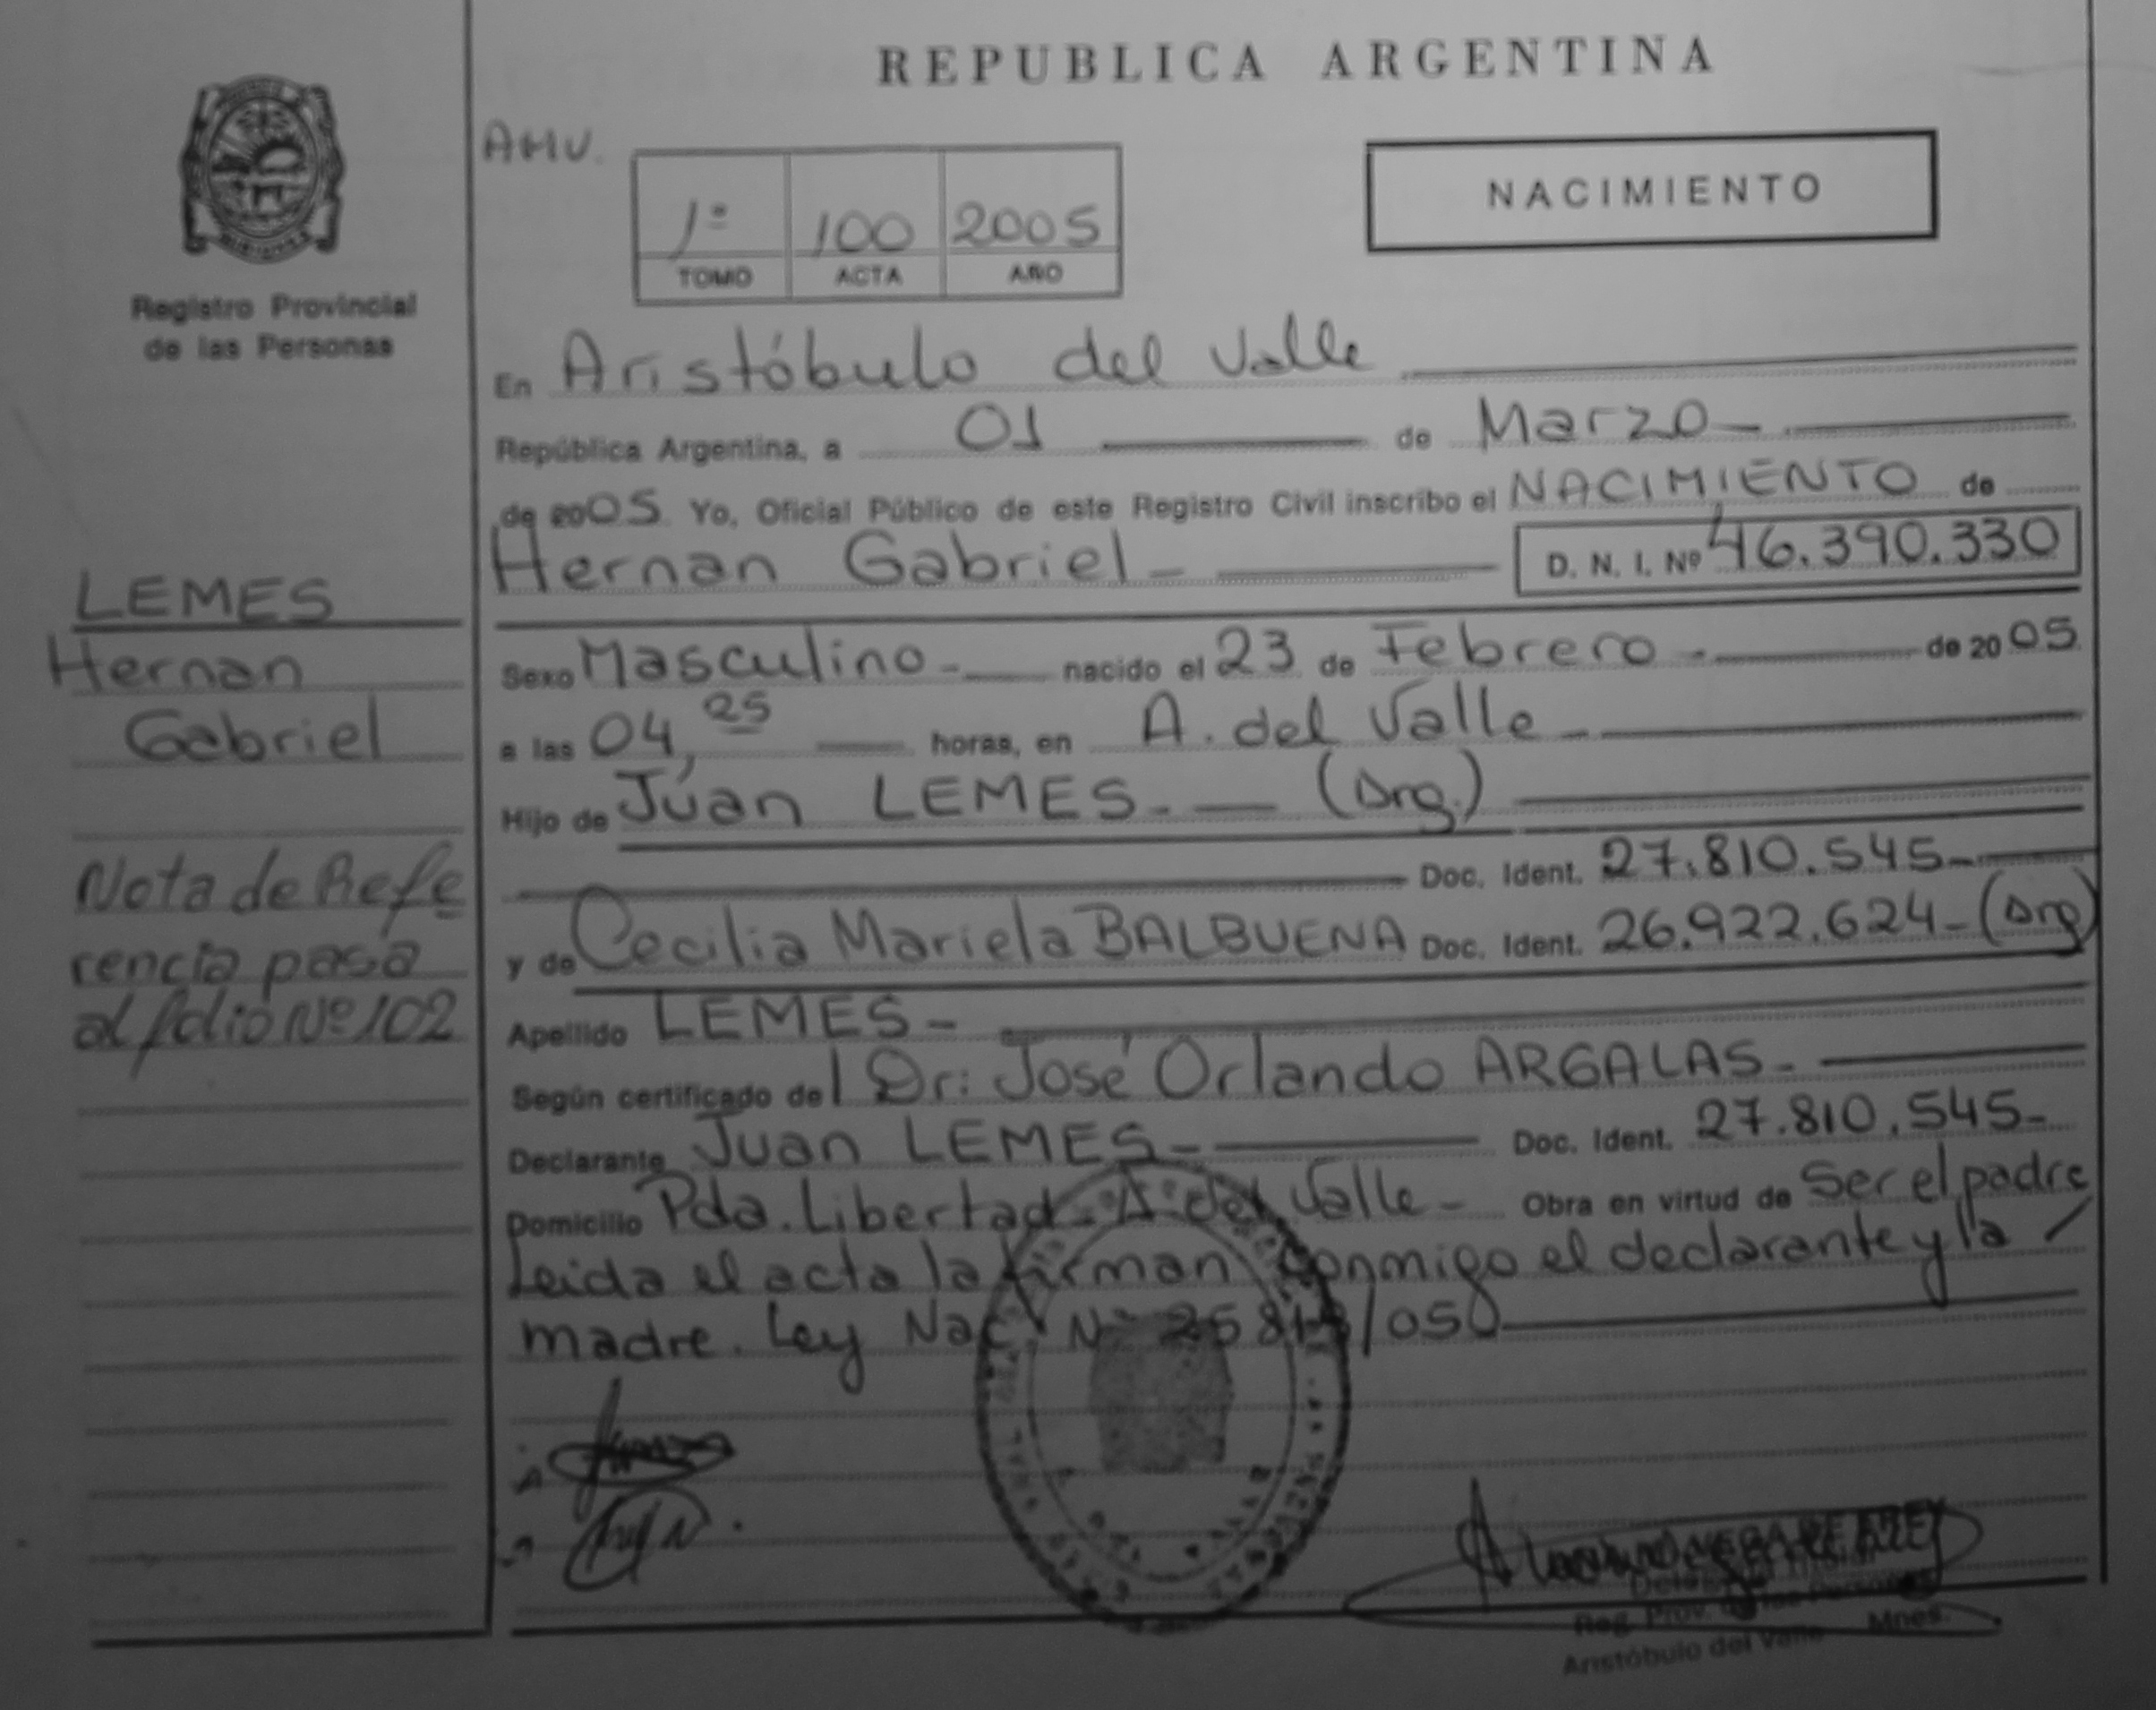 REPUBLICA ARGENTINA
AMV.
NACIMIENTO
1º 100 2005
TOMO ACTA AÑO
Registro Provincial
de las Personas
En Aristóbulo del Valle
República Argentina, a 01 de Marzo
de 2005 Yo, Oficial Público de este Registro Civil inscribo el NACIMIENTO de
Hernan Gabriel D. N. I. Nº 46.390.330
LEMES
Hernan
Gabriel
Sexo Masculino nacido el 23 de Febrero de 2005
a las 04,25 horas, en A. del Valle
Hijo de Juan LEMES (Arg.)
Doc. Ident. 27.810.545
y de Cecilia Mariela BALBUENA Doc. Ident. 26.922.624 (Arg)
Nota de Refe
rencia pasa
al folio Nº 102
Apellido LEMES
Según certificado del Dr: José Orlando ARGALAS
Declarante Juan LEMES Doc. Ident. 27.810.545
Domicilio Pda. Libertad A. del Valle Obra en virtud de Ser el padre
Leida el acta la firman conmigo el declarante y la
madre. Ley Nac. Nº
Reg. Prov. de las Personas
Aristóbulo del Valle Mnes.